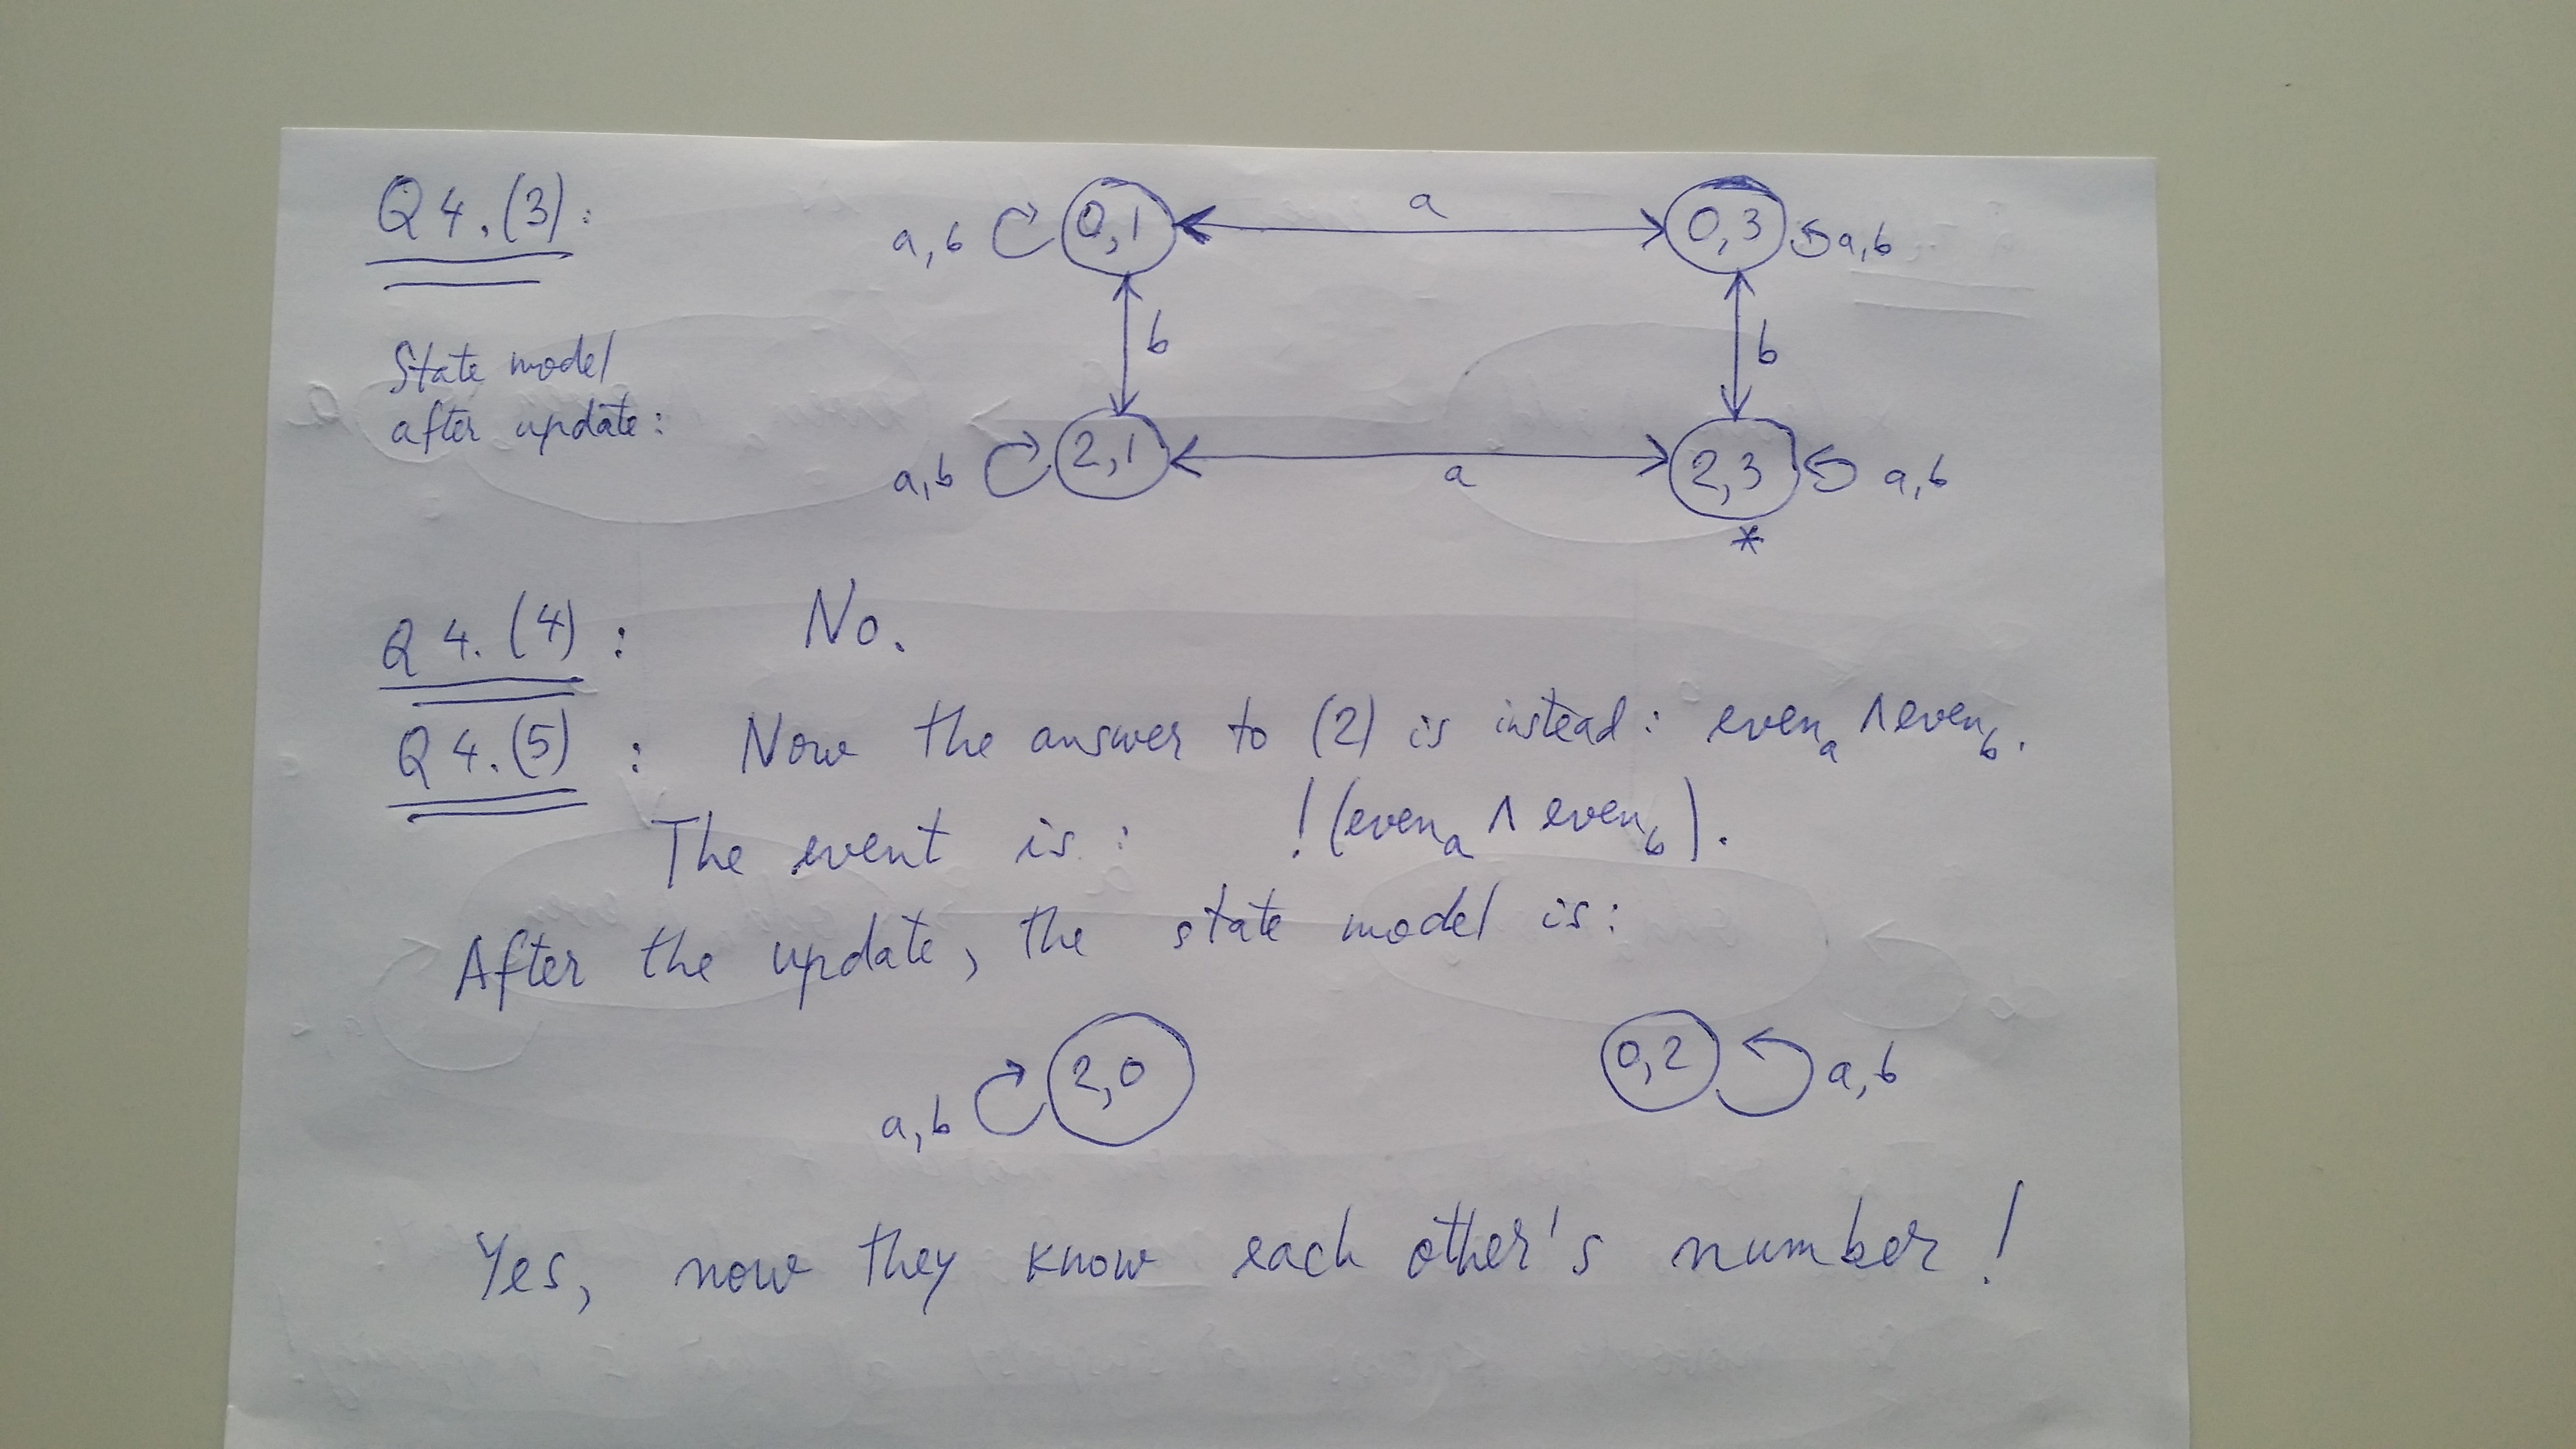 Q 4.(3):
0,1
a
0,3
a,b
a,b
b
b
State model
after update:
2,1
a
2,3
a,b
a,b
*
Q 4.(4): No.
Q 4.(5): Now the answer to (2) is instead: even_a ∧ even_b.
The event is: !(even_a ∧ even_b).
After the update, the state model is:
2,0
0,2
a,b
a,b
Yes, now they know each other's number!